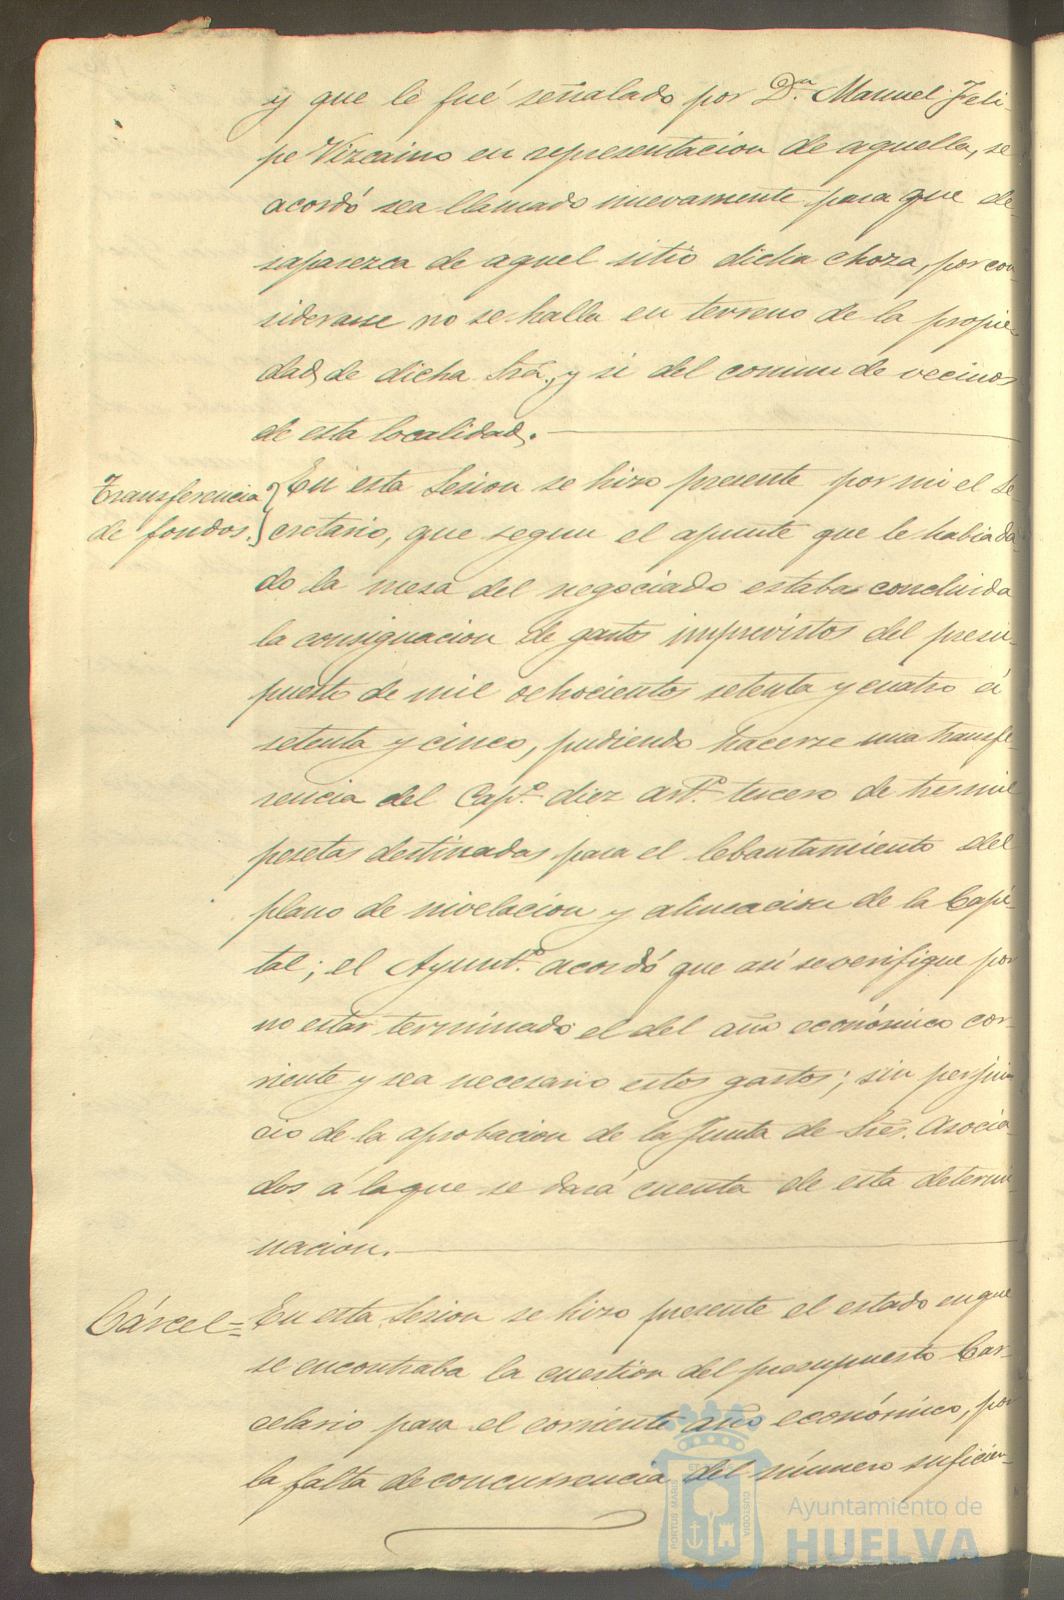 y que le fué señalado por D.n Manuel Feli-
pe Vizcaino en representacion de aquella, se
acordó sea llamado nuevamente para que de-
saparezca de aquel sitio dicha choza, por con-
siderarse no se halla en terreno de la propie-
dad de dicha Sra., y si del comun de vecinos
de esta localidad.
Transferencia
de fondos.
En esta Sesion se hizo presente por mi el Se-
cretario, que segun el apunte que le habia da-
do la mesa del negociado estaba concluida
la consignacion de gastos imprevistos del presu-
puesto de mil ochocientos setenta y cuatro á
setenta y cinco, pudiendo hacerse una transfe-
rencia del Cap.o diez art.o tercero de tres mil
pesetas destinadas para el lebantamiento del
plano de nivelacion y alineacion de la Capi-
tal; el Ayunt.o acordó que asi se verifique por
no estar terminado el del año económico cor-
riente y sea necesario estos gastos; sin perjui-
cio de la aprobacion de la Junta de Sres. Asocia-
dos á la que se dará cuenta de esta determi-
nacion.
Cárcel=
En esta Sesion se hizo presente el estado en que
se encontraba la cuestion del presupuesto Car-
celario para el corriente año económico, por
la falta de concurrencia del número suficien-
PORTUS MARIS
ET TERRAE
CUSTODIA
Ayuntamiento de
HUELVA